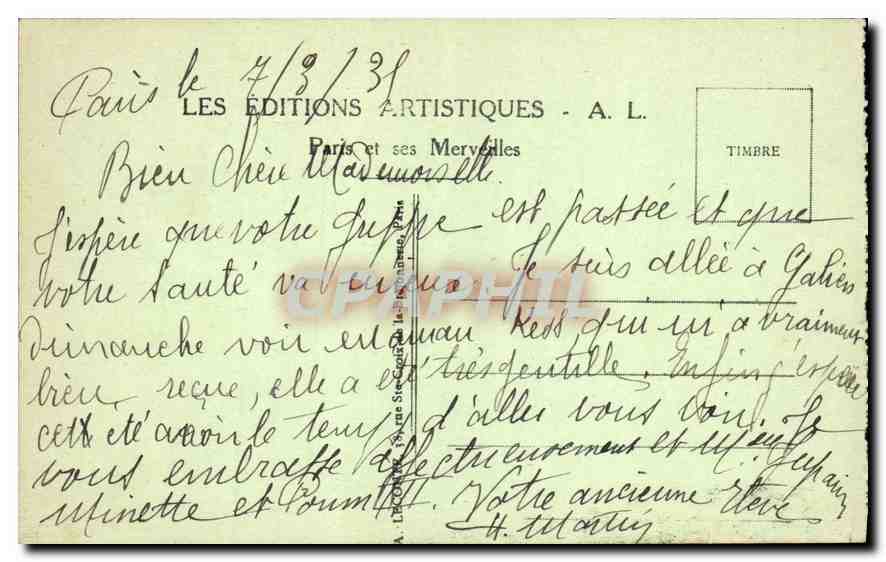 Paris le 7/3/35
LES ÉDITIONS ARTISTIQUES - A. L.
Paris et ses Merveilles
TIMBRE
Bien Chère Mademoiselle.
J'espère que votre grippe est passée et que
votre santé va mieux. Je suis allée à
dimanche voir maman qui m'a vraiment
bien reçue, elle a été très gentille. Enfin j'espère
cet été avoir le temps d'aller vous voir. Je
vous embrasse affectueusement et
Minette et Poum. Votre ancienne Elève
H. Martin
A. LECONTE, 38, rue Ste-Croix-de-la-Bretonnerie, Paris
CPAPHIL